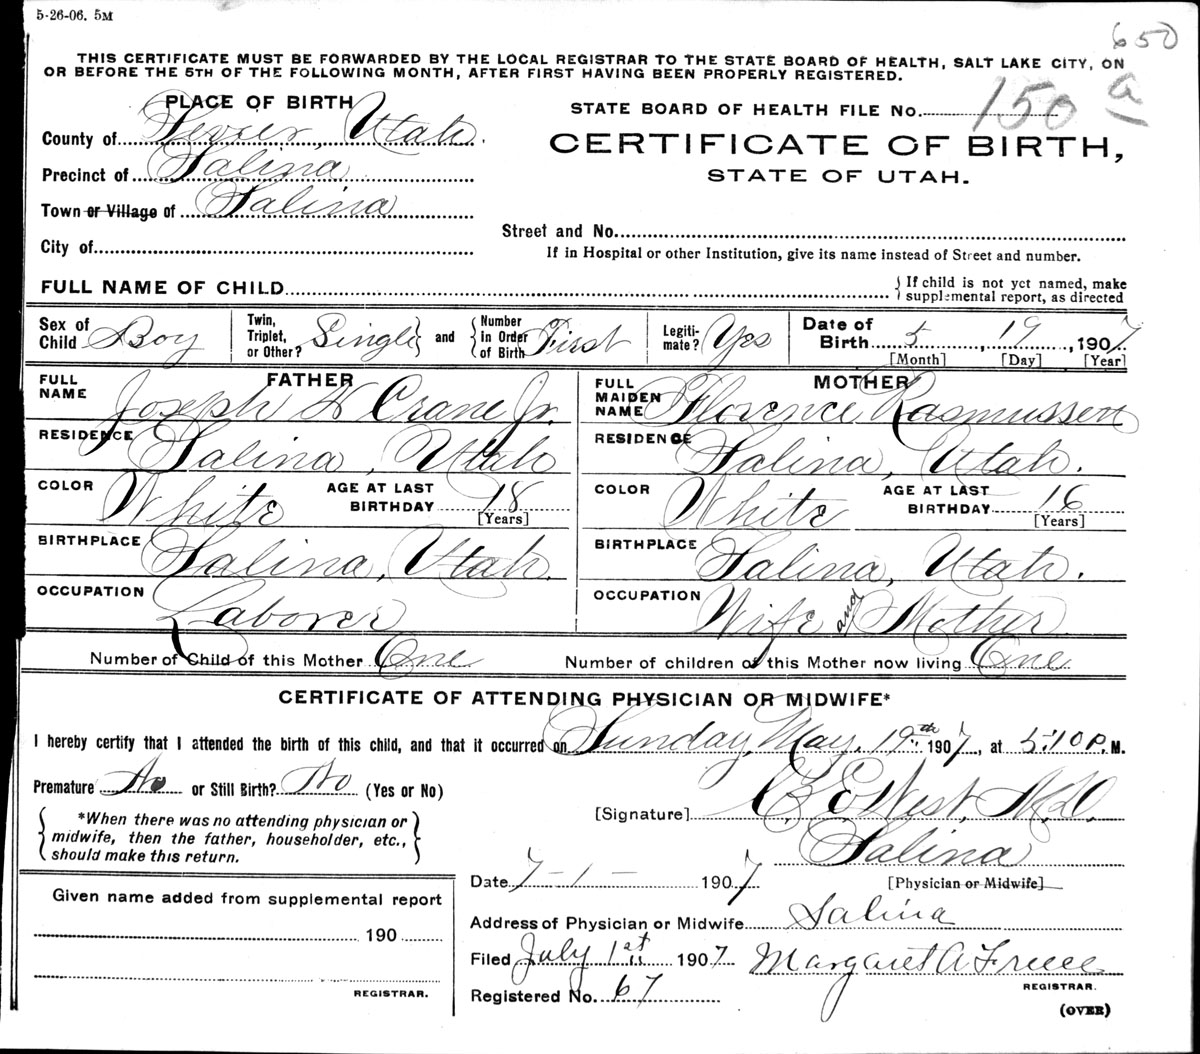 5-26-06. 5M
650
THIS CERTIFICATE MUST BE FORWARDED BY THE LOCAL REGISTRAR TO THE STATE BOARD OF HEALTH, SALT LAKE CITY, ON
OR BEFORE THE 5TH OF THE FOLLOWING MONTH, AFTER FIRST HAVING BEEN PROPERLY REGISTERED.
PLACE OF BIRTH
STATE BOARD OF HEALTH FILE No. 150 a
County of Sevier, Utah.
CERTIFICATE OF BIRTH,
Precinct of Salina
STATE OF UTAH.
Town or Village of Salina
Street and No.
City of
If in Hospital or other Institution, give its name instead of Street and number.
FULL NAME OF CHILD
{ If child is not yet named, make
supplemental report, as directed
Sex of Child Boy
Twin, Triplet, or Other? Single } and { Number In Order of Birth First
Legitimate? Yes
Date of Birth 5, 19, 1907
[Month] [Day] [Year]
FATHER
FULL NAME Joseph W Crane Jr.
MOTHER
FULL MAIDEN NAME Florence Rasmussen
RESIDENCE Salina, Utah
RESIDENCE Salina, Utah.
COLOR White AGE AT LAST BIRTHDAY 18 [Years]
COLOR White AGE AT LAST BIRTHDAY 16 [Years]
BIRTHPLACE Salina, Utah.
BIRTHPLACE Salina, Utah.
OCCUPATION Laborer
OCCUPATION Wife and Mother
Number of Child of this Mother One
Number of children of this Mother now living One
CERTIFICATE OF ATTENDING PHYSICIAN OR MIDWIFE*
I hereby certify that I attended the birth of this child, and that it occurred on Sunday, May, 19th 1907, at 5:10 P. M.
Premature No or Still Birth? No (Yes or No)
[Signature] C. E. West, M.D.
{ *When there was no attending physician or
midwife, then the father, householder, etc.,
should make this return. }
Salina
[Physician or Midwife]
Date 7-1- 1907
Given name added from supplemental report
190
REGISTRAR.
Address of Physician or Midwife Salina
Filed July 1st 1907 Margaret A Freece
REGISTRAR.
Registered No. 67
(OVER)